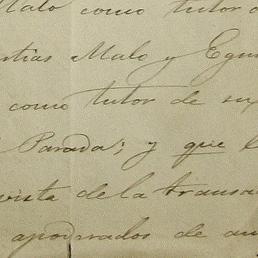 Malo como tutor d
tias Malo y Egu
como tutor de su
Parada; y que l
vista de la transa
apoderados de am